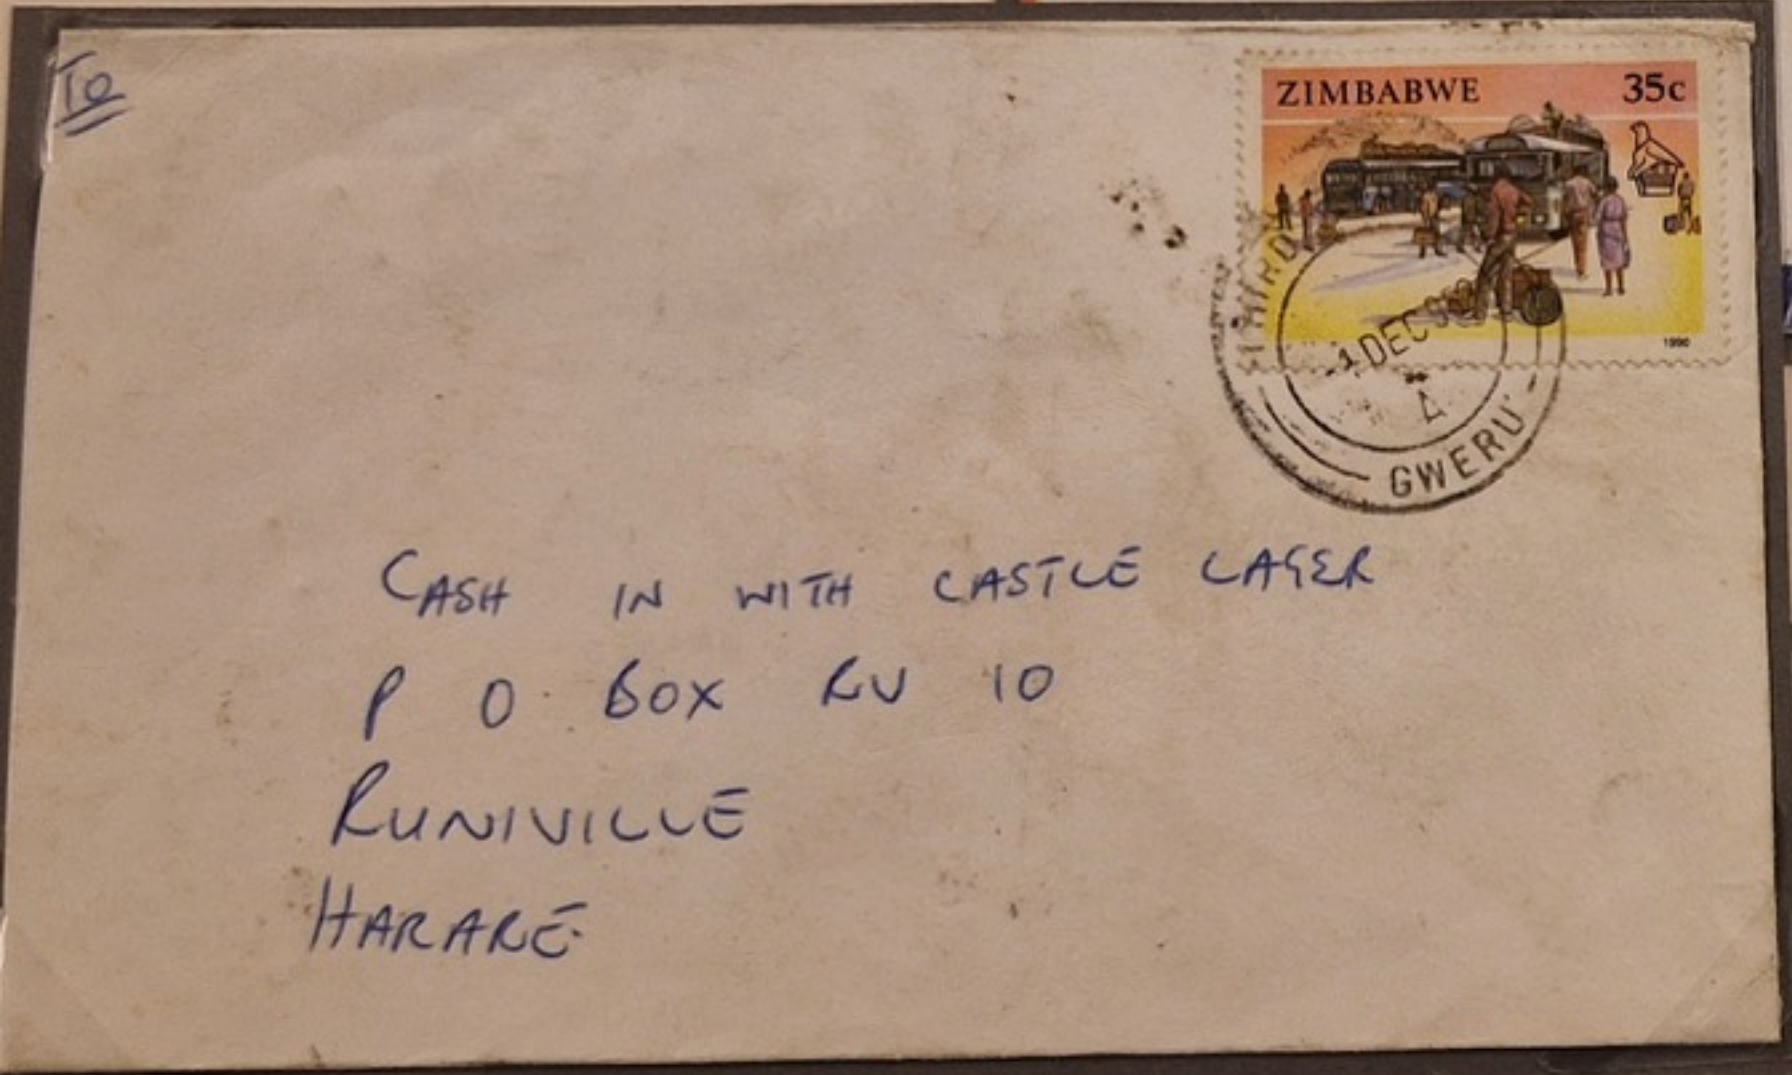 To
ZIMBABWE 35c
1990
1 DEC
A
GWERU
CASH IN WITH CASTLE LAGER
P O BOX RU 10
RUNIVILLE
HARARE